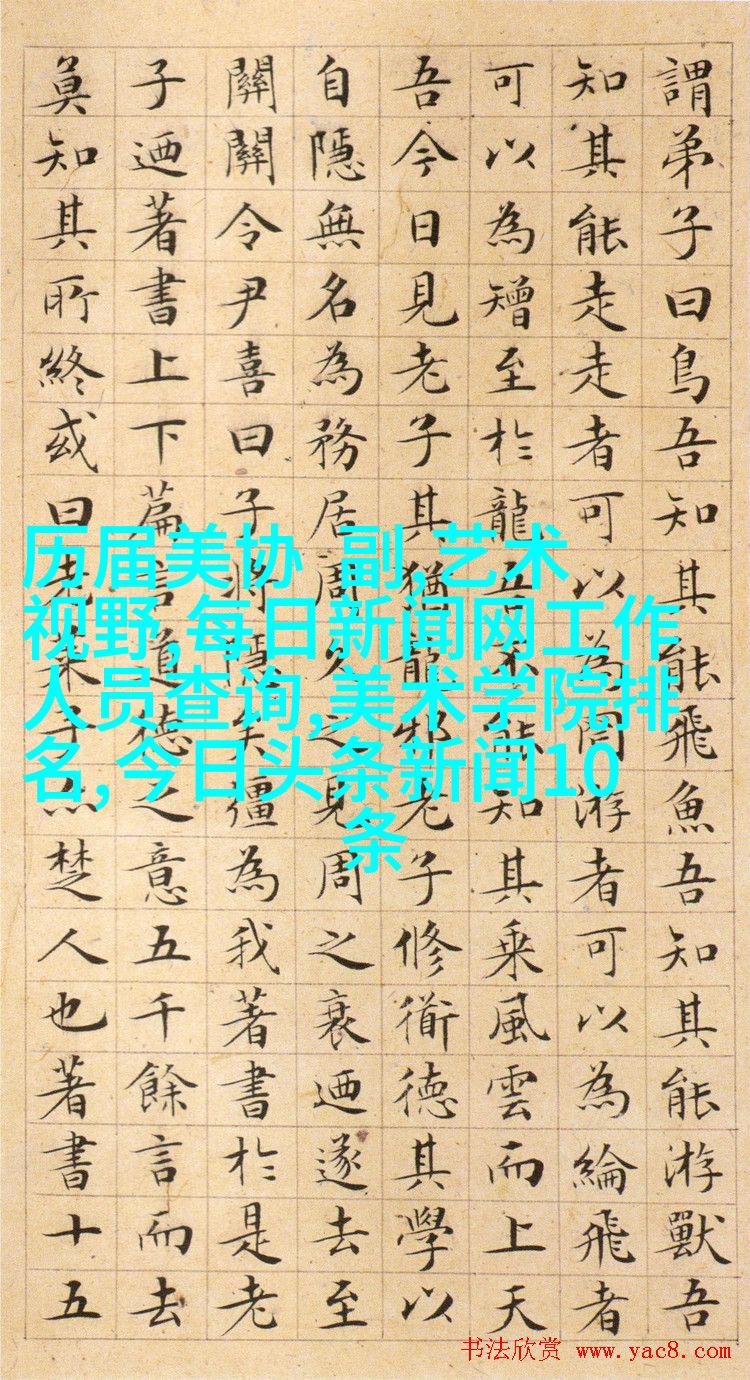 謂弟子曰鳥吾知其能飛魚吾知其能游獸吾
知其能走走者可以為罔游者可以為綸飛者
可以為矰至於龍吾不能知其乘風雲而上天
吾今日見老子其猶龍邪老子修衜德其學以
自隱無名為務居周久之見周之衰迺遂去至
關關令尹喜曰子將隱矣彊為我著書於是老
子迺著書上下篇言道德之意五千餘言而去
莫知其所終或曰老萊子亦楚人也著書十五
历届美协 副,艺术
视野,每日新闻网工作
人员查询,美术学院排
名,今日头条新闻10
条
书法欣赏 www.yac8.com